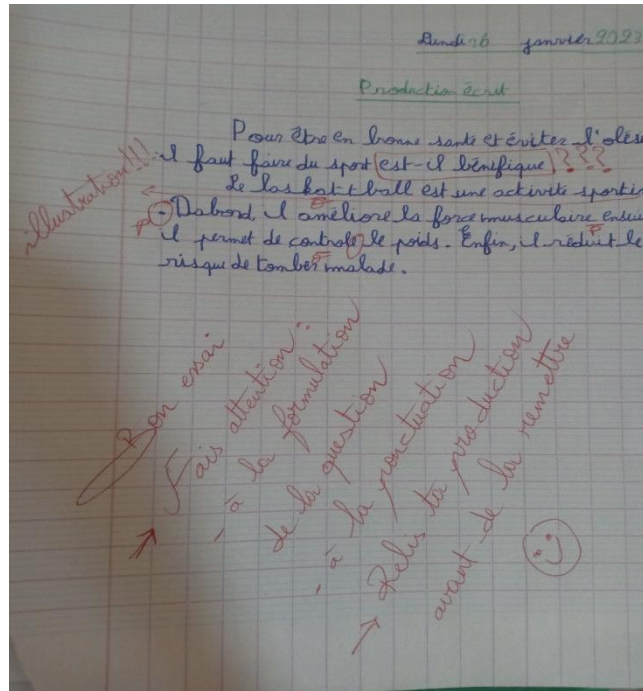 Lundi 16 janvier 2023
Production écrit
Pour être en bonne santé et éviter l'obés
il faut faire du sport (est-il bénifique) ???
Le bas kat t ball est une activité sportiv
- Dabord, il améliore la force musculaire ensui
il permet de controle le poids. Enfin, il réduit le
risque de tomber malade.
illustration!!!
Bon essai
→ Fais attention :
- à la formulation
de la question
- à la ponctuation
→ Relis ta production
avant de la remettre